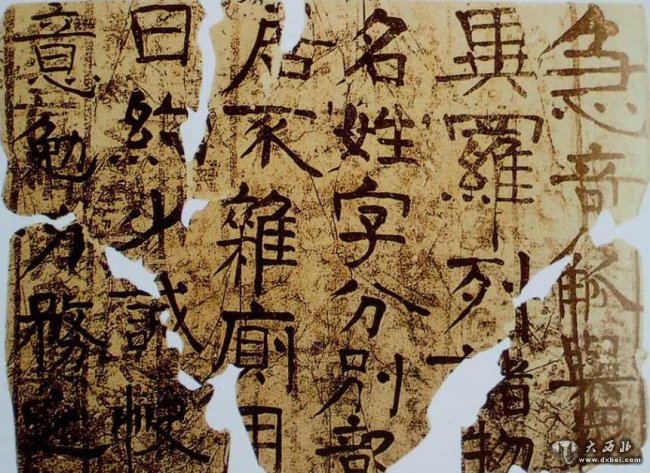 急奇觚與
異羅列諸物
名姓字分別部
居不雜廁用
日約少誠快
意勉力務之
大西北
www.dxbei.com